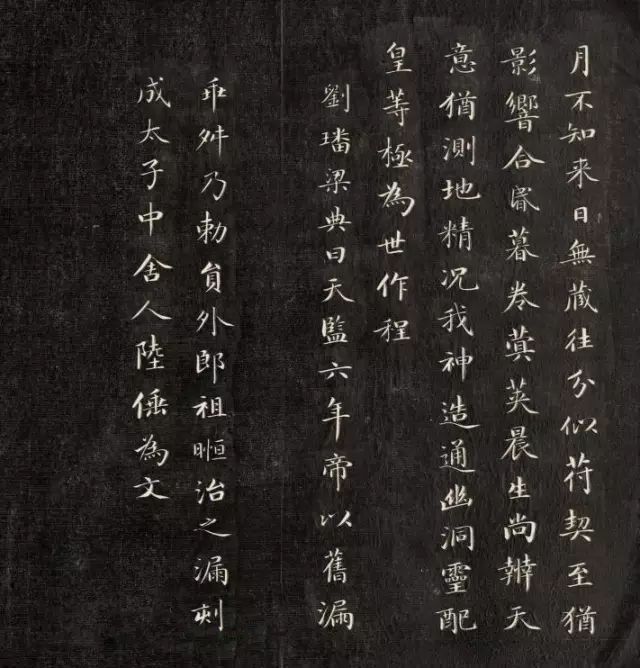 月不知来日無蔵往分似苻契至猶
影響合昬暮卷蓂英晨生尚辨天
意猶測地精况我神造通幽洞靈配
皇等極為世作程
劉璠梁典曰天監六年帝以舊漏
乖舛乃勅員外郎祖暅治之漏刻
成太子中舍人陸倕為文